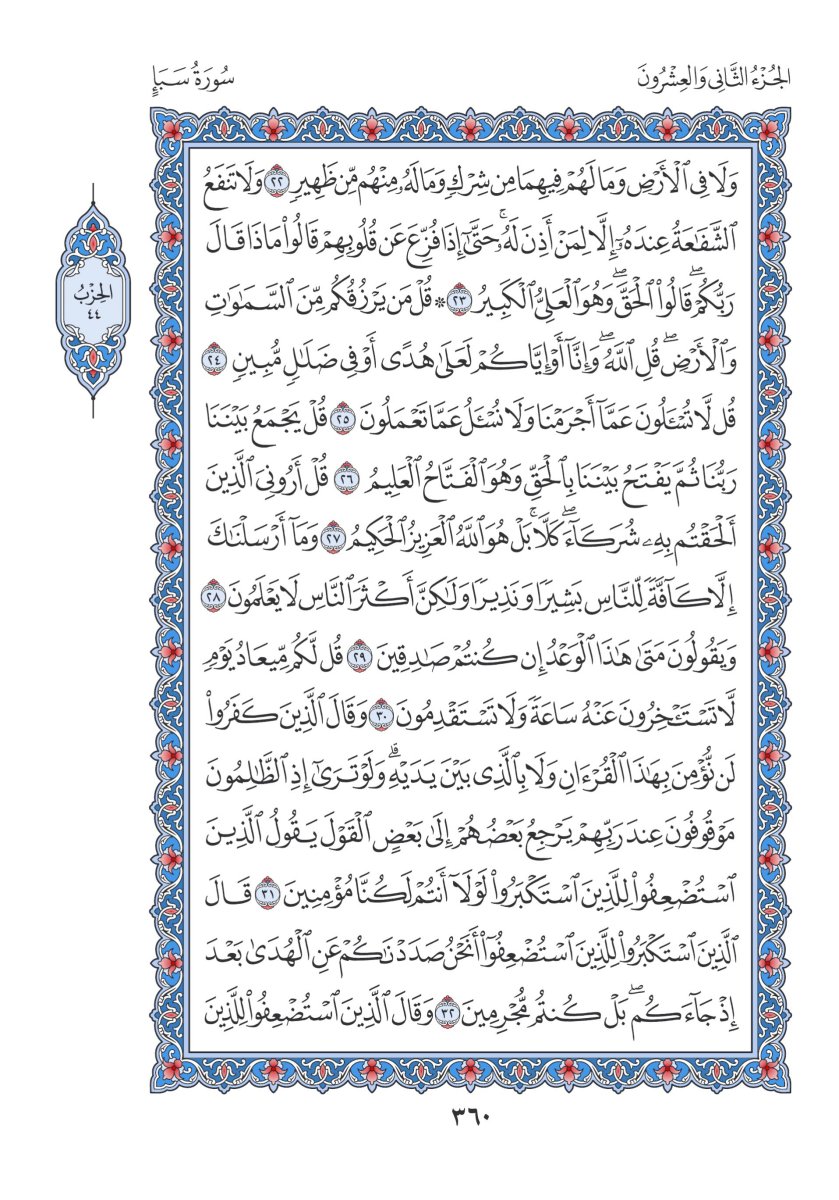 الجُزْءُ الثَّانِي وَالعِشْرُونَ
سُورَةُ سَبَإٍ
وَلَا فِي ٱلْأَرْضِ وَمَا لَهُمْ فِيهِمَا مِن شِرْكٖ وَمَا لَهُۥ مِنْهُم مِّن ظَهِيرٖ ٢٢ وَلَا تَنفَعُ
ٱلشَّفَٰعَةُ عِندَهُۥٓ إِلَّا لِمَنْ أَذِنَ لَهُۥۚ حَتَّىٰٓ إِذَا فُزِّعَ عَن قُلُوبِهِمْ قَالُوا۟ مَاذَا قَالَ
رَبُّكُمْۖ قَالُوا۟ ٱلْحَقَّۖ وَهُوَ ٱلْعَلِيُّ ٱلْكَبِيرُ ٢٣ ۞ قُلْ مَن يَرْزُقُكُم مِّنَ ٱلسَّمَٰوَٰتِ
وَٱلْأَرْضِۖ قُلِ ٱللَّهُۖ وَإِنَّآ أَوْ إِيَّاكُمْ لَعَلَىٰ هُدًى أَوْ فِي ضَلَٰلٖ مُّبِينٖ ٢٤
قُل لَّا تُسْـَٔلُونَ عَمَّآ أَجْرَمْنَا وَلَا نُسْـَٔلُ عَمَّا تَعْمَلُونَ ٢٥ قُلْ يَجْمَعُ بَيْنَنَا
رَبُّنَا ثُمَّ يَفْتَحُ بَيْنَنَا بِٱلْحَقِّ وَهُوَ ٱلْفَتَّاحُ ٱلْعَلِيمُ ٢٦ قُلْ أَرُونِيَ ٱلَّذِينَ
أَلْحَقْتُم بِهِۦ شُرَكَآءَۖ كَلَّاۚ بَلْ هُوَ ٱللَّهُ ٱلْعَزِيزُ ٱلْحَكِيمُ ٢٧ وَمَآ أَرْسَلْنَٰكَ
إِلَّا كَآفَّةٗ لِّلنَّاسِ بَشِيرٗا وَنَذِيرٗا وَلَٰكِنَّ أَكْثَرَ ٱلنَّاسِ لَا يَعْلَمُونَ ٢٨
وَيَقُولُونَ مَتَىٰ هَٰذَا ٱلْوَعْدُ إِن كُنتُمْ صَٰدِقِينَ ٢٩ قُل لَّكُم مِّيعَادُ يَوْمٖ
لَّا تَسْتَـْٔخِرُونَ عَنْهُ سَاعَةٗ وَلَا تَسْتَقْدِمُونَ ٣٠ وَقَالَ ٱلَّذِينَ كَفَرُوا۟
لَن نُّؤْمِنَ بِهَٰذَا ٱلْقُرْءَانِ وَلَا بِٱلَّذِي بَيْنَ يَدَيْهِۗ وَلَوْ تَرَىٰٓ إِذِ ٱلظَّٰلِمُونَ
مَوْقُوفُونَ عِندَ رَبِّهِمْ يَرْجِعُ بَعْضُهُمْ إِلَىٰ بَعْضٍ ٱلْقَوْلَ يَقُولُ ٱلَّذِينَ
ٱسْتُضْعِفُوا۟ لِلَّذِينَ ٱسْتَكْبَرُوا۟ لَوْلَآ أَنتُمْ لَكُنَّا مُؤْمِنِينَ ٣١ قَالَ
ٱلَّذِينَ ٱسْتَكْبَرُوا۟ لِلَّذِينَ ٱسْتُضْعِفُوٓا۟ أَنَحْنُ صَدَدْنَٰكُمْ عَنِ ٱلْهُدَىٰ بَعْدَ
إِذْ جَآءَكُمۖ بَلْ كُنتُم مُّجْرِمِينَ ٣٢ وَقَالَ ٱلَّذِينَ ٱسْتُضْعِفُوا۟ لِلَّذِينَ
الحِزْبُ
٤٤
٣٦٠